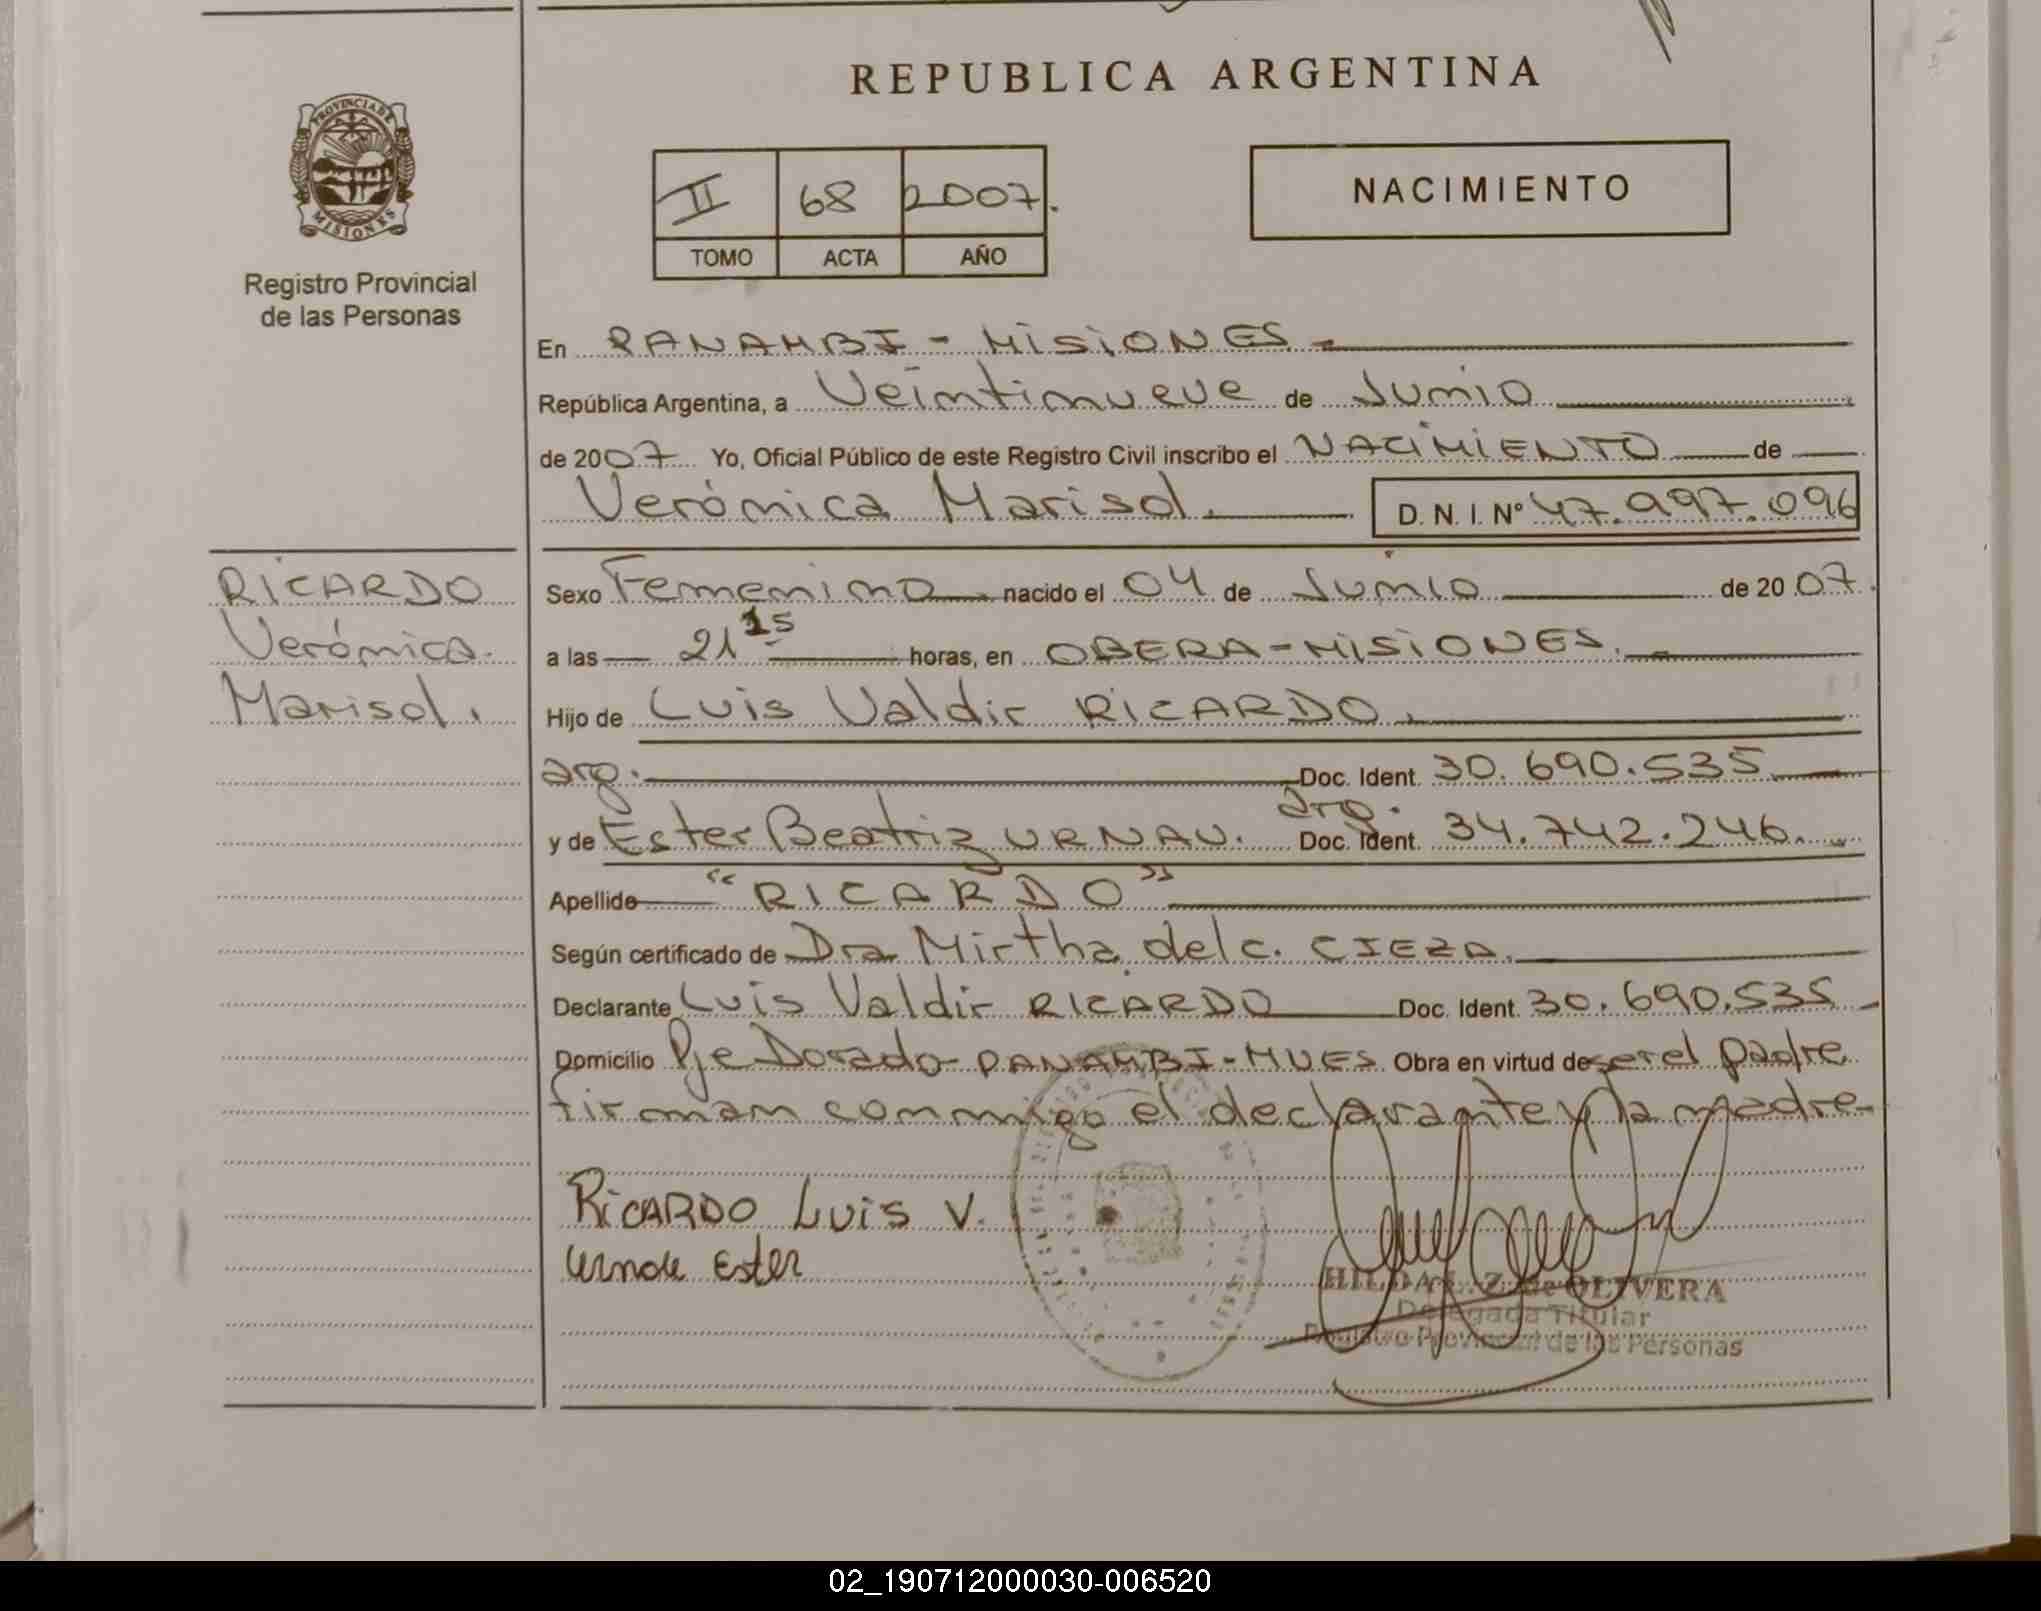 REPUBLICA ARGENTINA
PROVINCIA DE
MISIONES
Registro Provincial
de las Personas
II 68 2007.
TOMO ACTA AÑO
NACIMIENTO
En PANAMBI - MISIONES
República Argentina, a Veintinueve de Junio
de 2007 Yo, Oficial Público de este Registro Civil inscribo el NACIMIENTO de
Verónica Marisol. D. N. I. Nº 47.997.096
RICARDO
Verónica
Marisol.
Sexo Femenino nacido el 04 de Junio de 2007.
a las 21 15 horas, en OBERA - MISIONES.
Hijo de Luis Valdir RICARDO.
arg. Doc. Ident. 30.690.535
arg.
y de Ester Beatriz URNAU. Doc. Ident. 34.742.246.
Apellido "RICARDO"
Según certificado de Dra Mirtha del c. CIEZA.
Declarante Luis Valdir RICARDO Doc. Ident. 30.690.535
Domicilio Pje Dorado - PANAMBI - MNES Obra en virtud de ser el padre
firman conmigo el declarante y la madre
RICARDO LUIS V.
Ester
HILDA Z. de OLIVERA
Delegada Titular
Registro Provincial de las Personas
02_190712000030-006520